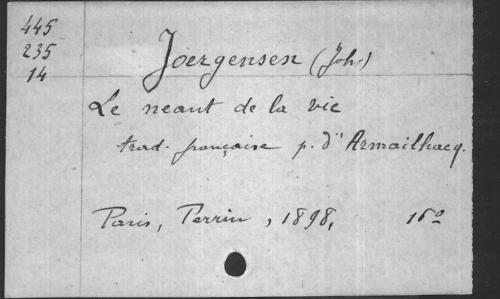 445
235
14
Joergensen (Joh.)
Le neant de la vie
trad. française p. d'Armailhacq.
Paris, Perrin, 1898, 16º